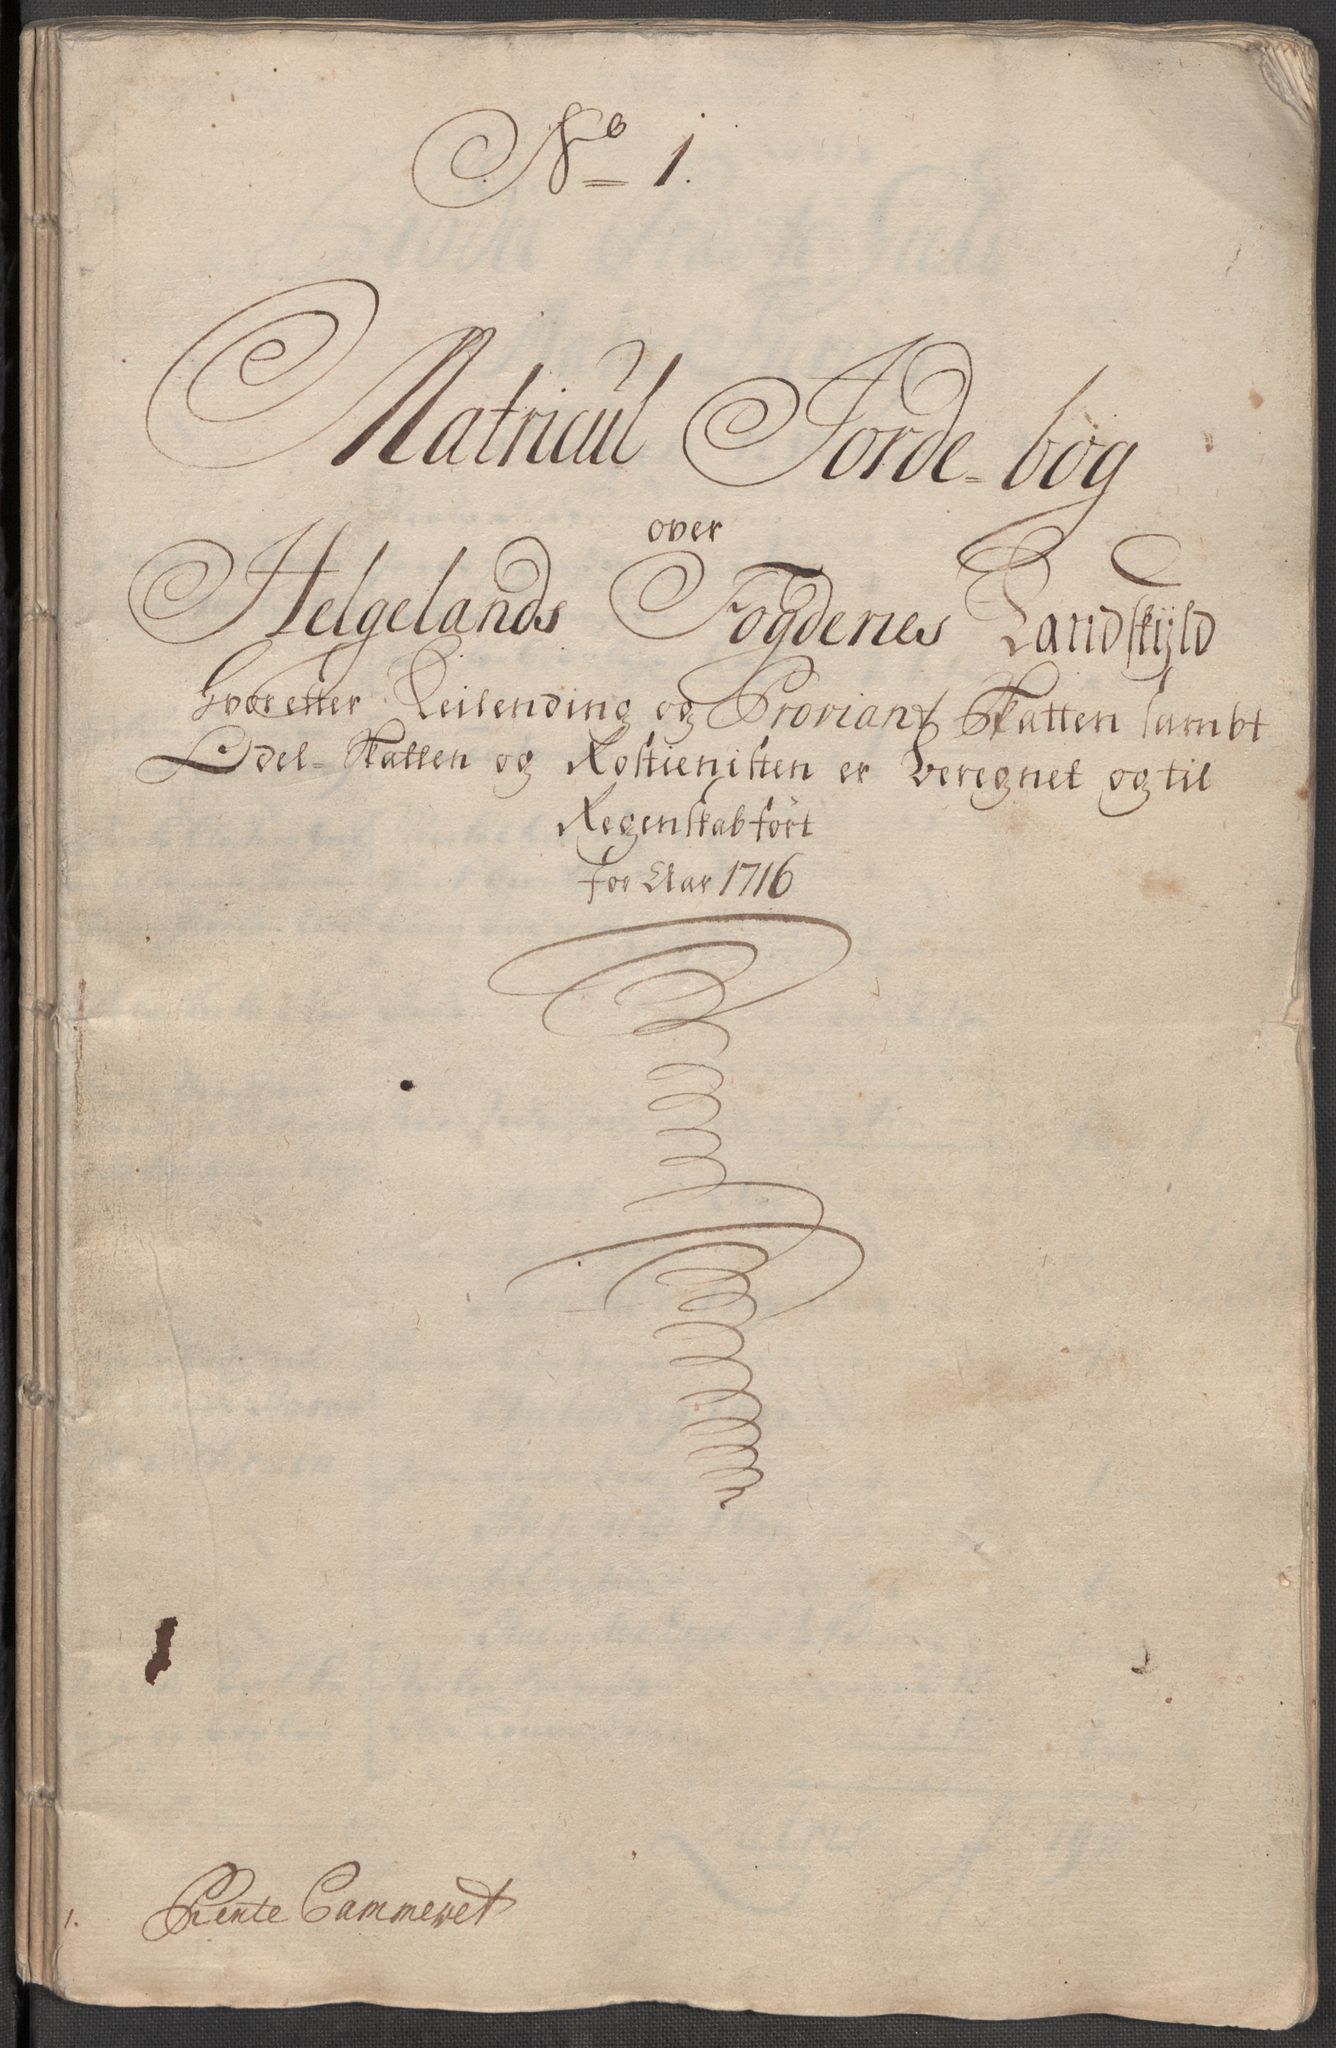 No 1.
Matricul Jorde-bog
over
Helgelands Fogderies Landskyld
hvor efter Leilending og Proviant Skatten sambt
Odel-Skatten og Rostienisten er beregnet og til
Regenskab ført
for Aar 1716
1. Rente Cammeret